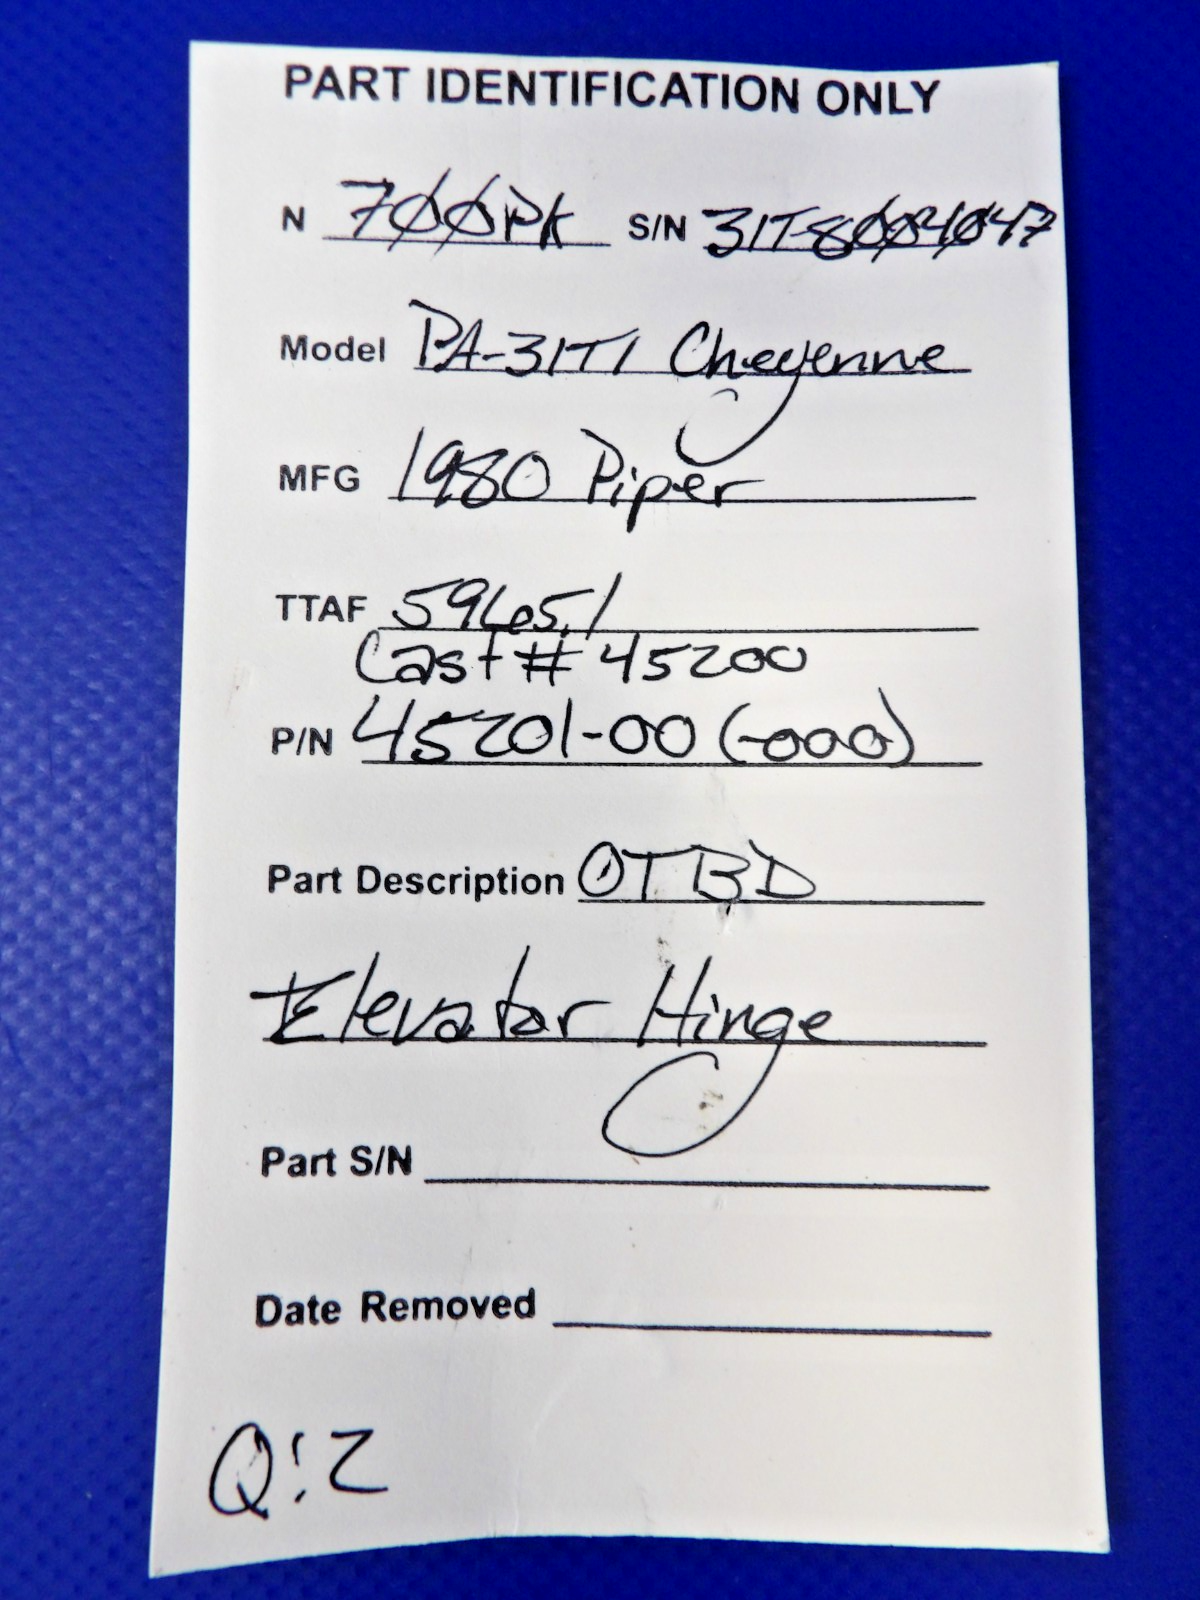 PART IDENTIFICATION ONLY
N 700PK S/N 31T-8004047
Model PA-31T1 Cheyenne
MFG 1980 Piper
TTAF 5965.1
Cast # 45200
P/N 45201-00 (-000)
Part Description OTBD
Elevator Hinge
Part S/N
Date Removed
Q:2